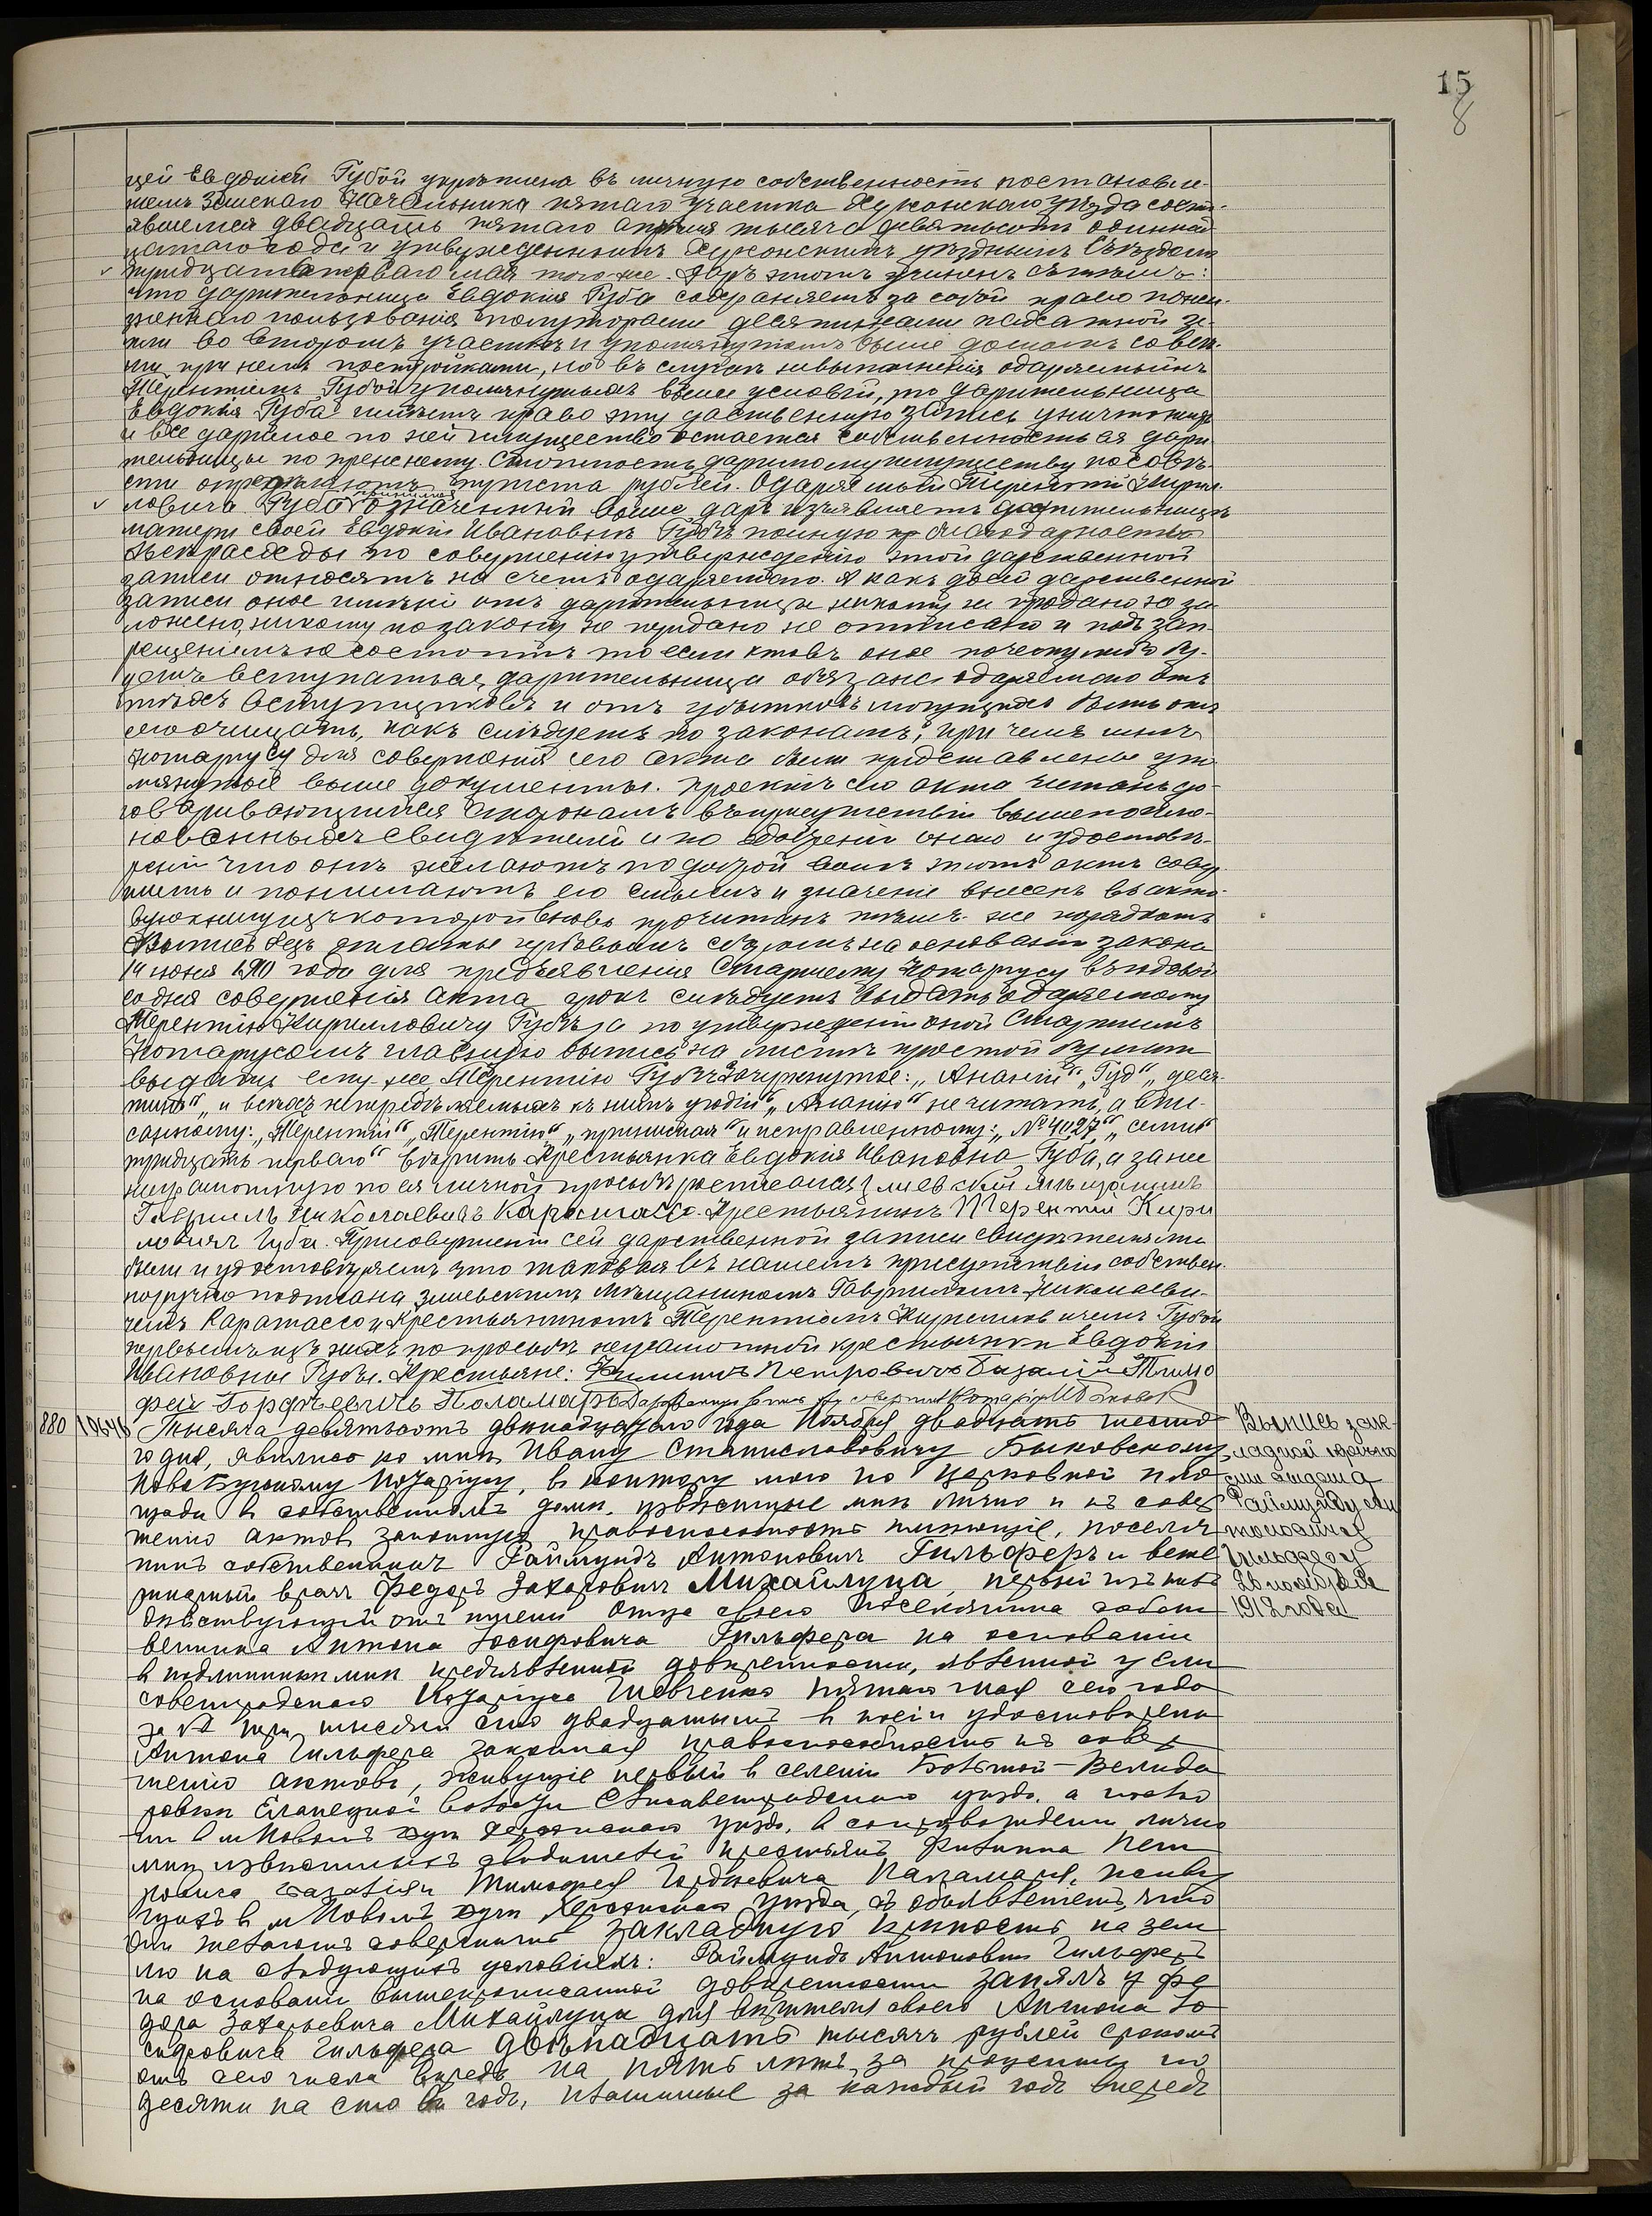 15
8
цей Евдокіей Губой укрѣплена въ личную собственность постановле-
ніемъ Земскаго Начальника пятаго участка Херсонскаго уѣзда состо-
явшемся двадцать пятаго апрѣля тысяча девятьсотъ одиннад
цатаго года и утвержденнымъ Херсонскимъ уѣзднымъ Съѣздомъ
тридцать перваго мая того-же. Даръ этотъ учиненъ съ тѣмъ:
что дарительница Евдокія Губа сохраняетъ за собой право пожиз-
неннаго пользованія полуторами десятинами надѣльной зе-
мли во второмъ участкѣ и упомянутымъ выше домомъ со все-
ми при немъ постройками, но въ случаѣ невыполненія одаряемымъ
Терентіемъ Губой упомянутыхъ выше условій, то дарительница
Евдокія Губа имѣетъ право эту дарственную запись уничтожить
и все даримое по ней имущество остается собственностью ея дари
тельницы по прежнему. Стоимость даримому имуществу по совѣ-
сти опредѣляютъ триста рублей. Одаряемый Терентій Кирил-
ловичъ Губа принимая означенный выше даръ изъявляетъ дарительницѣ
матери своей Евдокіи Ивановнѣ Губѣ полную благодарность
Всѣ расходы по совершенію и утвержденію этой дарственной
записи относятъ на счетъ одаряемаго. А какъ до сей дарственной
записи оное имѣніе отъ дарительницы никому не продано не за
ложено, никому по закону не передано не отписано и подъ зап-
рещеніемъ не состоитъ то если кто въ оное почему либо бу-
детъ вступаться, дарительница обязана одаряемаго отъ
тѣхъ вступщиковъ и отъ убытковъ могущихъ быть отъ
его очищать, какъ слѣдуетъ по законамъ; при чемъ мнѣ
Нотаріусу для совершенія сего акта были представлены упо
мянутые выше документы. Проектъ сего акта читанъ до-
говаривающимся сторонамъ въ присутствіи вышепоиме-
нованныхъ свидѣтелей и по одобреніи онаго и удостовѣ-
реніи что они желаютъ по доброй волѣ этотъ актъ совер
шить и понимаютъ его смыслъ и значеніе внесенъ въ акто-
вую книгу изъ которой вновь прочитанъ тѣмъ же порядкомъ
Выпись безъ оплаты гербовымъ сборомъ на основаніи закона
14 іюня 1910 года для предъявленія Старшему Нотаріусу въ годовой
со дня совершенія акта срокъ слѣдуетъ выдать одаряемому
Терентію Кирилловичу Губѣ, а по утвержденіи оной Старшимъ
Нотаріусомъ главную выпись на листѣ простой бумаги
выдать ему-же Терентію Губѣ. Зачеркнутое: „Ананій“ „Губ“ „деся-
тинъ“ „и всѣхъ непредѣляемыхъ къ нимъ угодій“ „Ананію“ не читать, а впи-
санному: „Терентій“ „Терентію“ „принимая“ и исправленному: „№ 4027“ „семь“
тридцать перваго“ вѣрить. Крестьянка Евдокія Ивановна Губа, а за нее
неграмотную по ея личной просьбѣ росписался Змѣевскій мѣщанинъ
Гавріилъ Николаевичъ Карамассо. Крестьянинъ Терентій Кири
ловичъ Губа. При совершеніи сей дарственной записи свидѣтелями
были и удостовѣряемъ что таковая въ нашемъ присутствіи собствен-
норучно подписана Змѣевскимъ мѣщаниномъ Гавріиломъ Николаеви-
чемъ Карамассо и крестьяниномъ Терентіемъ Кирилловичемъ Губой
первымъ изъ нихъ по просьбѣ неграмотной крестьянки Евдокіи
Ивановны Губы. Крестьяне: Филиппъ Петровичъ Базалій Тимо
фей Гордѣевичъ Паламарь
880 19646 Тысяча девятьсотъ двѣнадцатаго года Ноября двадцать шесто
го дня, явились ко мнѣ Ивану Станиславовичу Быковскому,
Новобугскому Нотаріусу, въ контору мою по Церковной пло
щади въ собственномъ домѣ, извѣстные мнѣ лично и къ совер
шенію актовъ законную правоспособность имѣющіе, поселя
нинъ собственникъ Раймундъ Антоновичъ Гильферъ и вете
ринарный врачъ Федоръ Захаровичъ Михайлуца, первый изъ нихъ
дѣйствующій отъ имени Отца своего поселянина собст
венника Антона Іосифовича Гильфера на основаніи
въ подлинникѣ мнѣ предъявленной довѣренности, явленной у Ели
саветградскаго Нотаріуса Шевченко пятаго мая сего года
за № три тысячи сто двадцатымъ въ коей удостовѣрена
Антона Гильфера законная правоспособность къ совер
шенію актовъ, живущіе первый въ селеніи Большой-Велидо
ровкѣ Еланецкой волости Елисаветградскаго уѣзда, а послѣд
ній въ м. Новомъ Бугѣ Херсонскаго уѣзда, въ сопровожденіи лично
мнѣ извѣстныхъ свидѣтелей крестьянъ Филиппа Пет
ровича Базалія и Тимофея Гордѣевича Паламаря, живу
щихъ въ м. Новомъ Бугѣ Херсонскаго уѣзда, съ объявленіемъ, что
они желаютъ совершить закладную крѣпость на зем
лю на слѣдующихъ условіяхъ: Раймундъ Антоновичъ Гильферъ
на основаніи вышепрописанной довѣренности занялъ у Фе
дора Захарьевича Михайлуцы для вѣрителя своего Антона Іо
сифовича Гильфера двѣнадцать тысячъ рублей срокомъ
отъ сего числа впредь на пять лѣтъ за проценты по
десяти на сто въ годъ, платимые за каждый годъ впередъ
Выпись зак-
ладной крѣпо
сти выдана
Раймунду Ан
тоновичу
Гильферу
26 ноября
1912 года